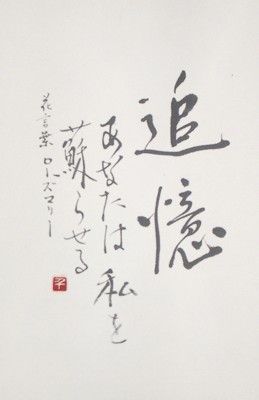 追憶
あなたは私を
蘇らせる
花言葉 ローズマリー